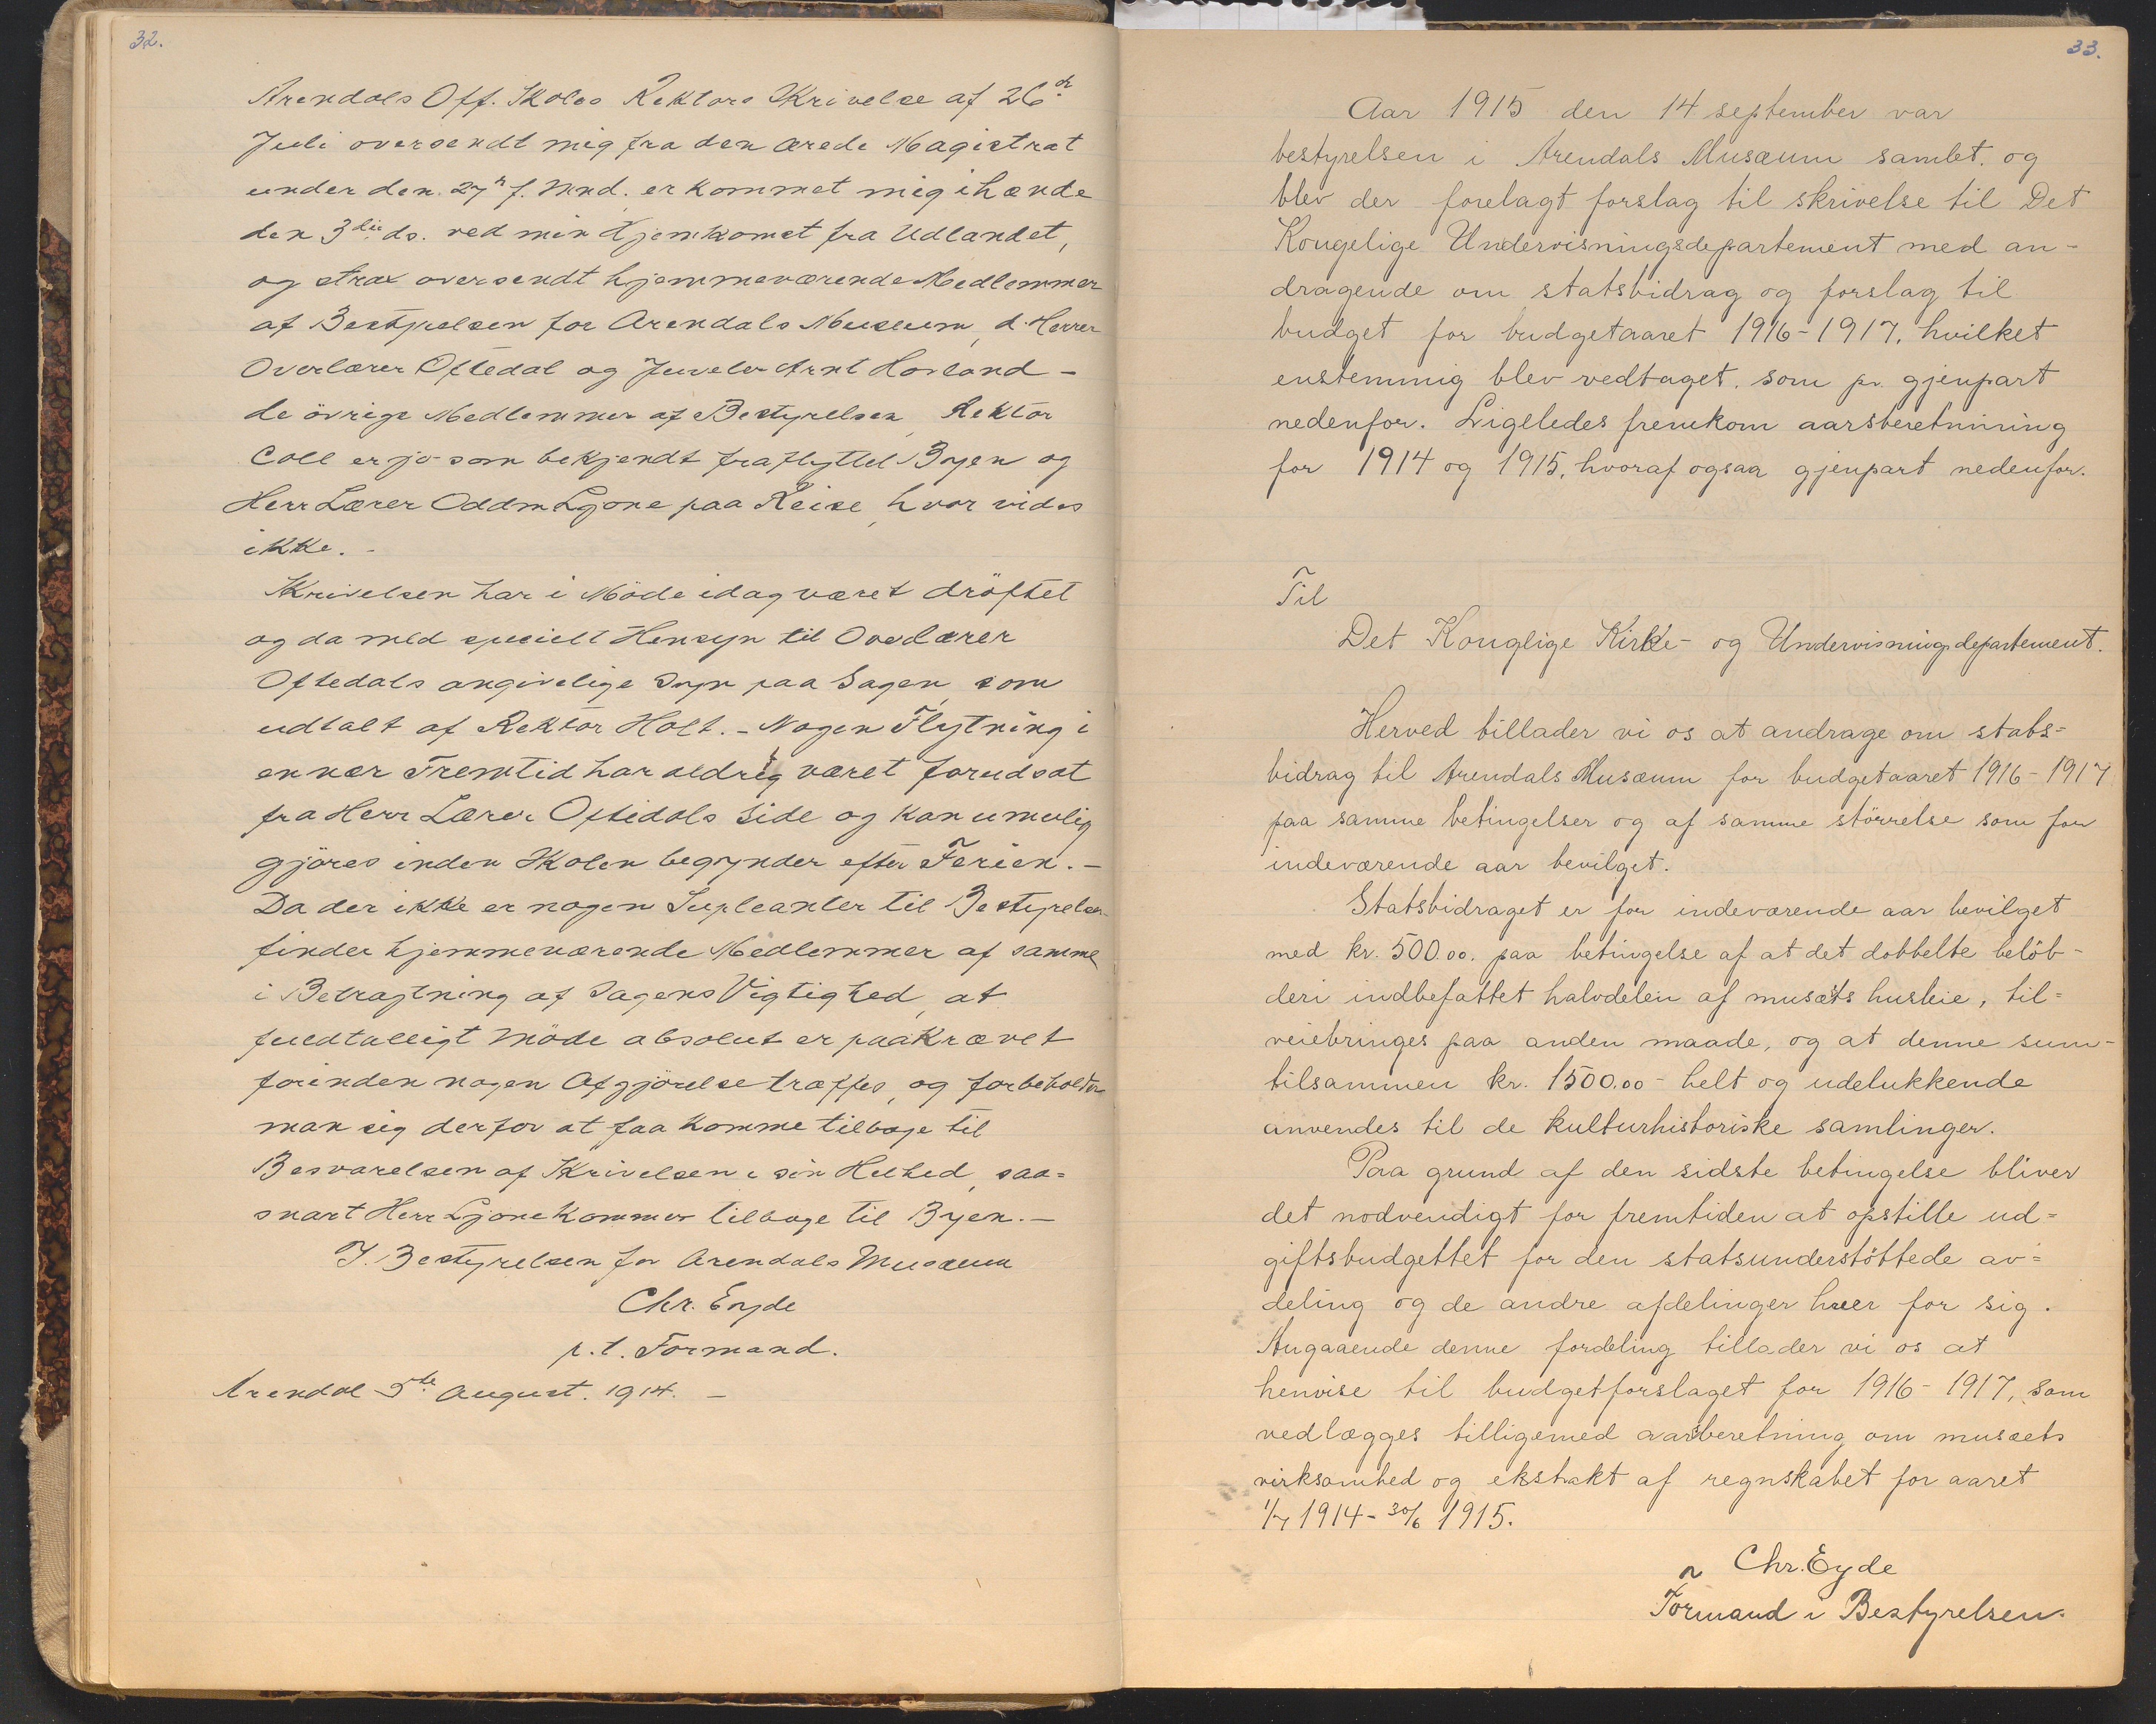 32.
Arendals Off. Skoles Rektors Skrivelse af 26de
Juli oversendt mig fra den ærede Magistrat
under den 27n f. Mnd. er kommet mig ihænde
den 3die ds. ved min Hjemkomst fra Udlandet,
og strax oversendt hjemmeværende Medlemmer
af Bestyrelsen for Arendals Museum, d'Herrer
Overlærer Oftedal og Juveler Arnt Hovland –
de övrige Medlemmer af Bestyrelsen, Rektor
Coll er jo som bekjendt fraflyttet Byen og
Herr Lærer Oddm Ljone paa Reise, hvor vides
ikke. –
Skrivelsen har i Möde idag været dröftet
og da med specielt Hensyn til Overlærer
Oftedals angivelige Syn paa Sagen, som
udtalt af Rektor Holt. – Nogen Flytning i
en nær Fremtid har aldrig været forudsat
fra Herr Lærer Oftedals Side og kan umulig
gjöres inden Skolen begynder efter Ferien. –
Da der ikke er nogen Supleanter til Bestyrelsen
finder hjemmeværende Medlemmer af samme
i Betragtning af Sagens Vigtighed, at
fuldtalligt Möde absolut er paakrævet
forinden nogen Afgjörelse træffes, og forbeholder
man sig derfor at faa komme tilbage til
Besvarelsen af Skrivelsen i sin Helhed, saa=
snart Herr Ljone kommer tilbage til Byen. –
I. Bestyrelsen for Arendals Musæum
Chr. Eyde
p.t. Formand.
Arendal 5te August. 1914. –
33.
Aar 1915 den 14 september var
bestyrelsen i Arendals Musæum samlet, og
blev der forelagt forslag til skrivelse til Det
Kongelige Undervisningsdepartement med an-
dragende om statsbidrag og forslag til
budget for budgetaaret 1916-1917, hvilket
enstemmig blev vedtaget, som pr. gjenpart
nedenfor. Ligeledes fremkom aarsberetnining
for 1914 og 1915, hvoraf ogsaa gjenpart nedenfor.
Til
Det Konglige Kirke- og Undervisningsdepartement.
Herved tillader vi os at andrage om stats=
bidrag til Arendals Musæum for budgetaaret 1916-1917
paa samme betingelser og af samme störrelse som for
indeværende aar bevilget.
Statsbidraget er for indeværende aar bevilget
med kr. 500.00. paa betingelse af at det dobbelte belöb-
deri indbefattet halvdelen af musæets husleie, til=
veiebringes paa anden maade, og at denne sum-
tilsammen kr. 1500.00 - helt og udelukkende
anvendes til de kulturhistoriske samlinger.
Paa grund af den sidste betingelse bliver
det nodvendigt for fremtiden at opstille ud=
giftsbudgettet for den statsunderstöttede av=
deling og de andre afdelinger hver for sig.
Angaaende denne fordeling tillader vi os at
henvise til budgetforslaget for 1916-1917, som
vedlægges tilligemed aarsberetning om musæets
virksomhed og ekstrakt af regnskabet for aaret
1/7 1914 - 30/6 1915.
Chr. Eyde
Formand i Bestyrelsen.